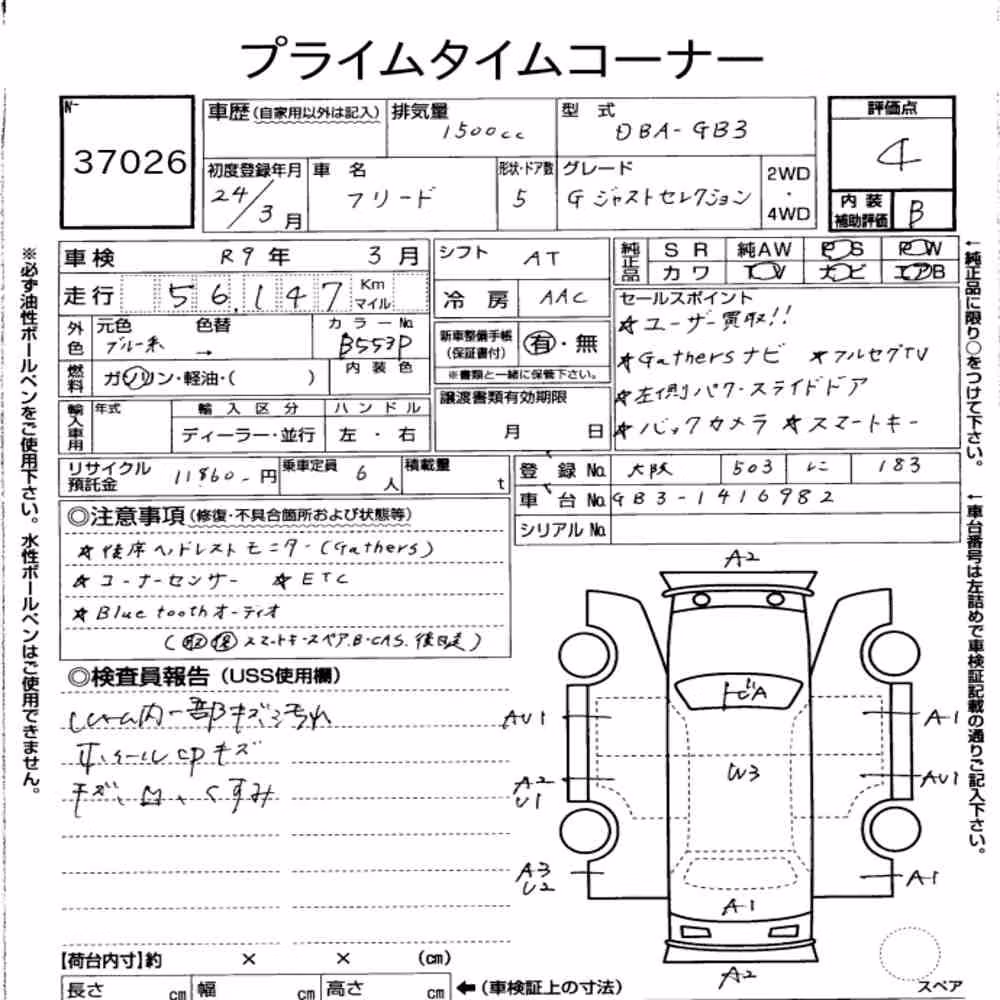 プライムタイムコーナー
№
37026
車歴(自家用以外は記入)
排気量
1500cc
型 式
DBA-GB3
評価点
4
初度登録年月
24/3月
車 名
フリード
形状・ドア数
5
グレード
G ジャストセレクション
2WD
・
4WD
内 装
補助評価
B
車検
R9年 3月
シフト
AT
純正品
SR
純AW
PS
PW
カワ
TV
ナビ
エアB
走行
56,147
Km
マイル
冷房
AAC
セールスポイント
☆ユーザー買取!!
☆Gathersナビ ☆フルセグTV
☆左側パワースライドドア
☆バックカメラ ☆スマートキー
外色
元色
ブルー系
色替
→
カラーNo.
B553P
新車整備手帳
(保証書付)
有・無
※書類と一緒に保管下さい。
燃料
ガソリン・軽油・( )
内装色
輸入車用
年式
輸入区分
ディーラー・並行
ハンドル
左・右
譲渡書類有効期限
月 日
リサイクル
預託金
11860-円
乗車定員
6人
積載量
t
登録No.
大阪
503
に
183
車台No.
GB3-1416982
シリアルNo.
◎注意事項(修復・不具合箇所および状態等)
☆後席ヘッドレストモニター(Gathers)
☆コーナーセンサー ☆ETC
☆Bluetoothオーディオ
(取 保 スマートキースペア.B-CAS.後日送)
◎検査員報告(USS使用欄)
シャ内一部キズ、汚れ
ホイールCPキズ
キズ、凹、くすみ
A2
トビA
AU1
A1
W3
A2
U1
AU1
A3
U2
A1
A1
A2
スペア
【荷台内寸】約 × × (cm)
長さ cm
幅 cm
高さ cm
←(車検証上の寸法)
※必ず油性ボールペンをご使用下さい。水性ボールペンはご使用できません。
←純正品に限り○をつけて下さい。
←車台番号は左詰めで車検証記載の通りご記入下さい。